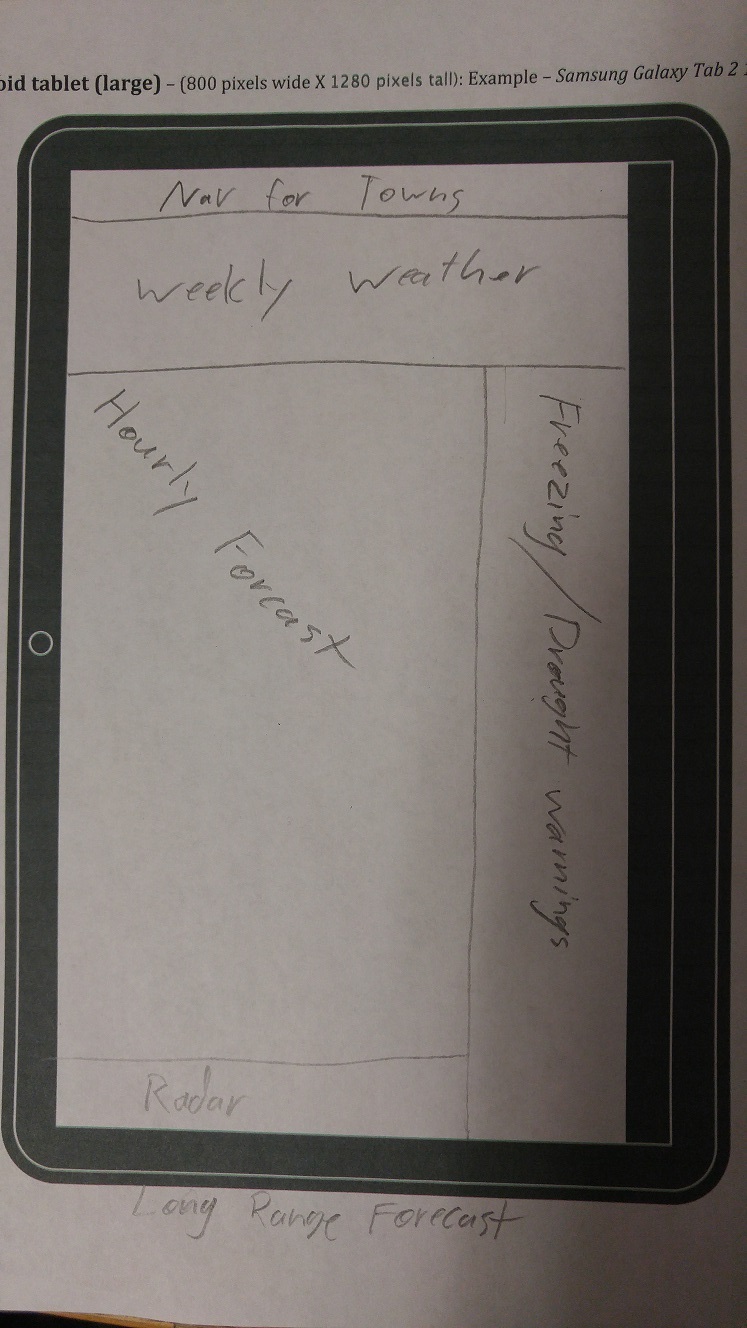 oid tablet (large) – (800 pixels wide X 1280 pixels tall): Example – Samsung Galaxy Tab 2
Nav for Towns
Weekly Weather
Hourly Forcast
Freezing/Drought warnings
Radar
Long Range Forecast